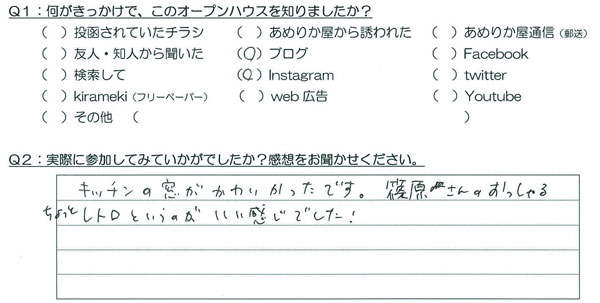 Q1：何がきっかけで、このオープンハウスを知りましたか？
(　) 投函されていたチラシ　(　) あめりか屋から誘われた　(　) あめりか屋通信（郵送）
(　) 友人・知人から聞いた　(○) ブログ　(　) Facebook
(　) 検索して　(○) Instagram　(　) twitter
(　) kirameki（フリーペーパー）　(　) web広告　(　) Youtube
(　) その他　（　）
Q2：実際に参加してみていかがでしたか？感想をお聞かせください。
キッチンの窓がかわいかったです。篠原さんのおっしゃる
ちょっとレトロというのがいい感じでした！